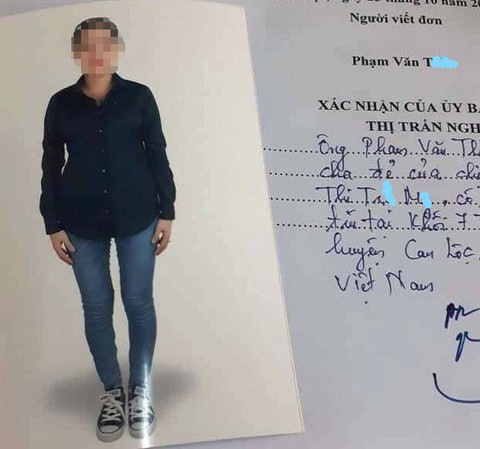 tháng 10 năm 20
Người viết đơn
Phạm Văn T
XÁC NHẬN CỦA ỦY BA
THỊ TRẤN NGH
Ông Phạm Văn Th
cha đẻ của chị
Thị T M, có
trú tại Khối 7 T
huyện Can Lộc,
Việt Nam